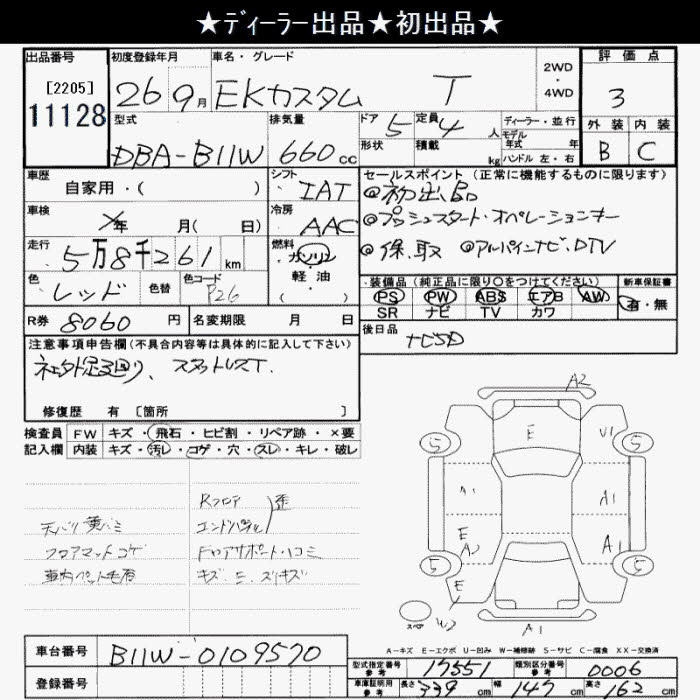 ★ディーラー出品★初出品★
出品番号 初度登録年月 車名・グレード 評価点
[2205]
11128
26 9月 EKカスタム T
2WD
・
4WD
3
型式 排気量 ドア 5 定員 4人
ディーラー・並行
モデル
年式 年
ハンドル 左・右
外装 内装
DBA-B11W 660cc 形状 積載 kg
B C
車歴 自家用・( )
シフト IAT
セールスポイント (正常に機能するものに限ります)
◎初出品
車検 年 月( 日)
冷房 AAC
◎プッシュスタート・オペレーションキー
走行 5万8千261km
燃料 ガソリン
軽・油
( )
◎保、取 ◎アルパインナビ、DTV
色 レッド 色替 色コード P26
装備品 (純正品に限り○をつけてください) 新車保証書
PS PW ABS エアB AW 有・無
SR ナビ TV カワ
R券 8060円 名変期限 月 日
後日品 ナビSD
注意事項申告欄(不具合内容等は具体的に記入して下さい)
社外足廻り、スタットレスT.
修復歴 有 [箇所 ]
検査員 FW キズ・飛石・ヒビ割・リペア跡・×要
記入欄 内装 キズ・汚レ・コゲ・穴・スレ・キレ・破レ
Rフロア 歪
エンドパネル
天バリ黄バミ
フロアマットコゲ Fロアサポート凹ミ
車内ペット毛有 キズ
A2
E
5
U1
5
A1
E
A2
A1
5
E
5
スペア
W2
A1
A-キズ E-エクボ U-凹み W-補修跡 S-サビ C-腐食 XX-交換済
車台番号 B11W-0109570
登録番号
型式指定番号 参考 17551 類別区分番号 参考 0006
車庫証明用 参考 長さ 339cm 幅 147cm 高さ 162cm